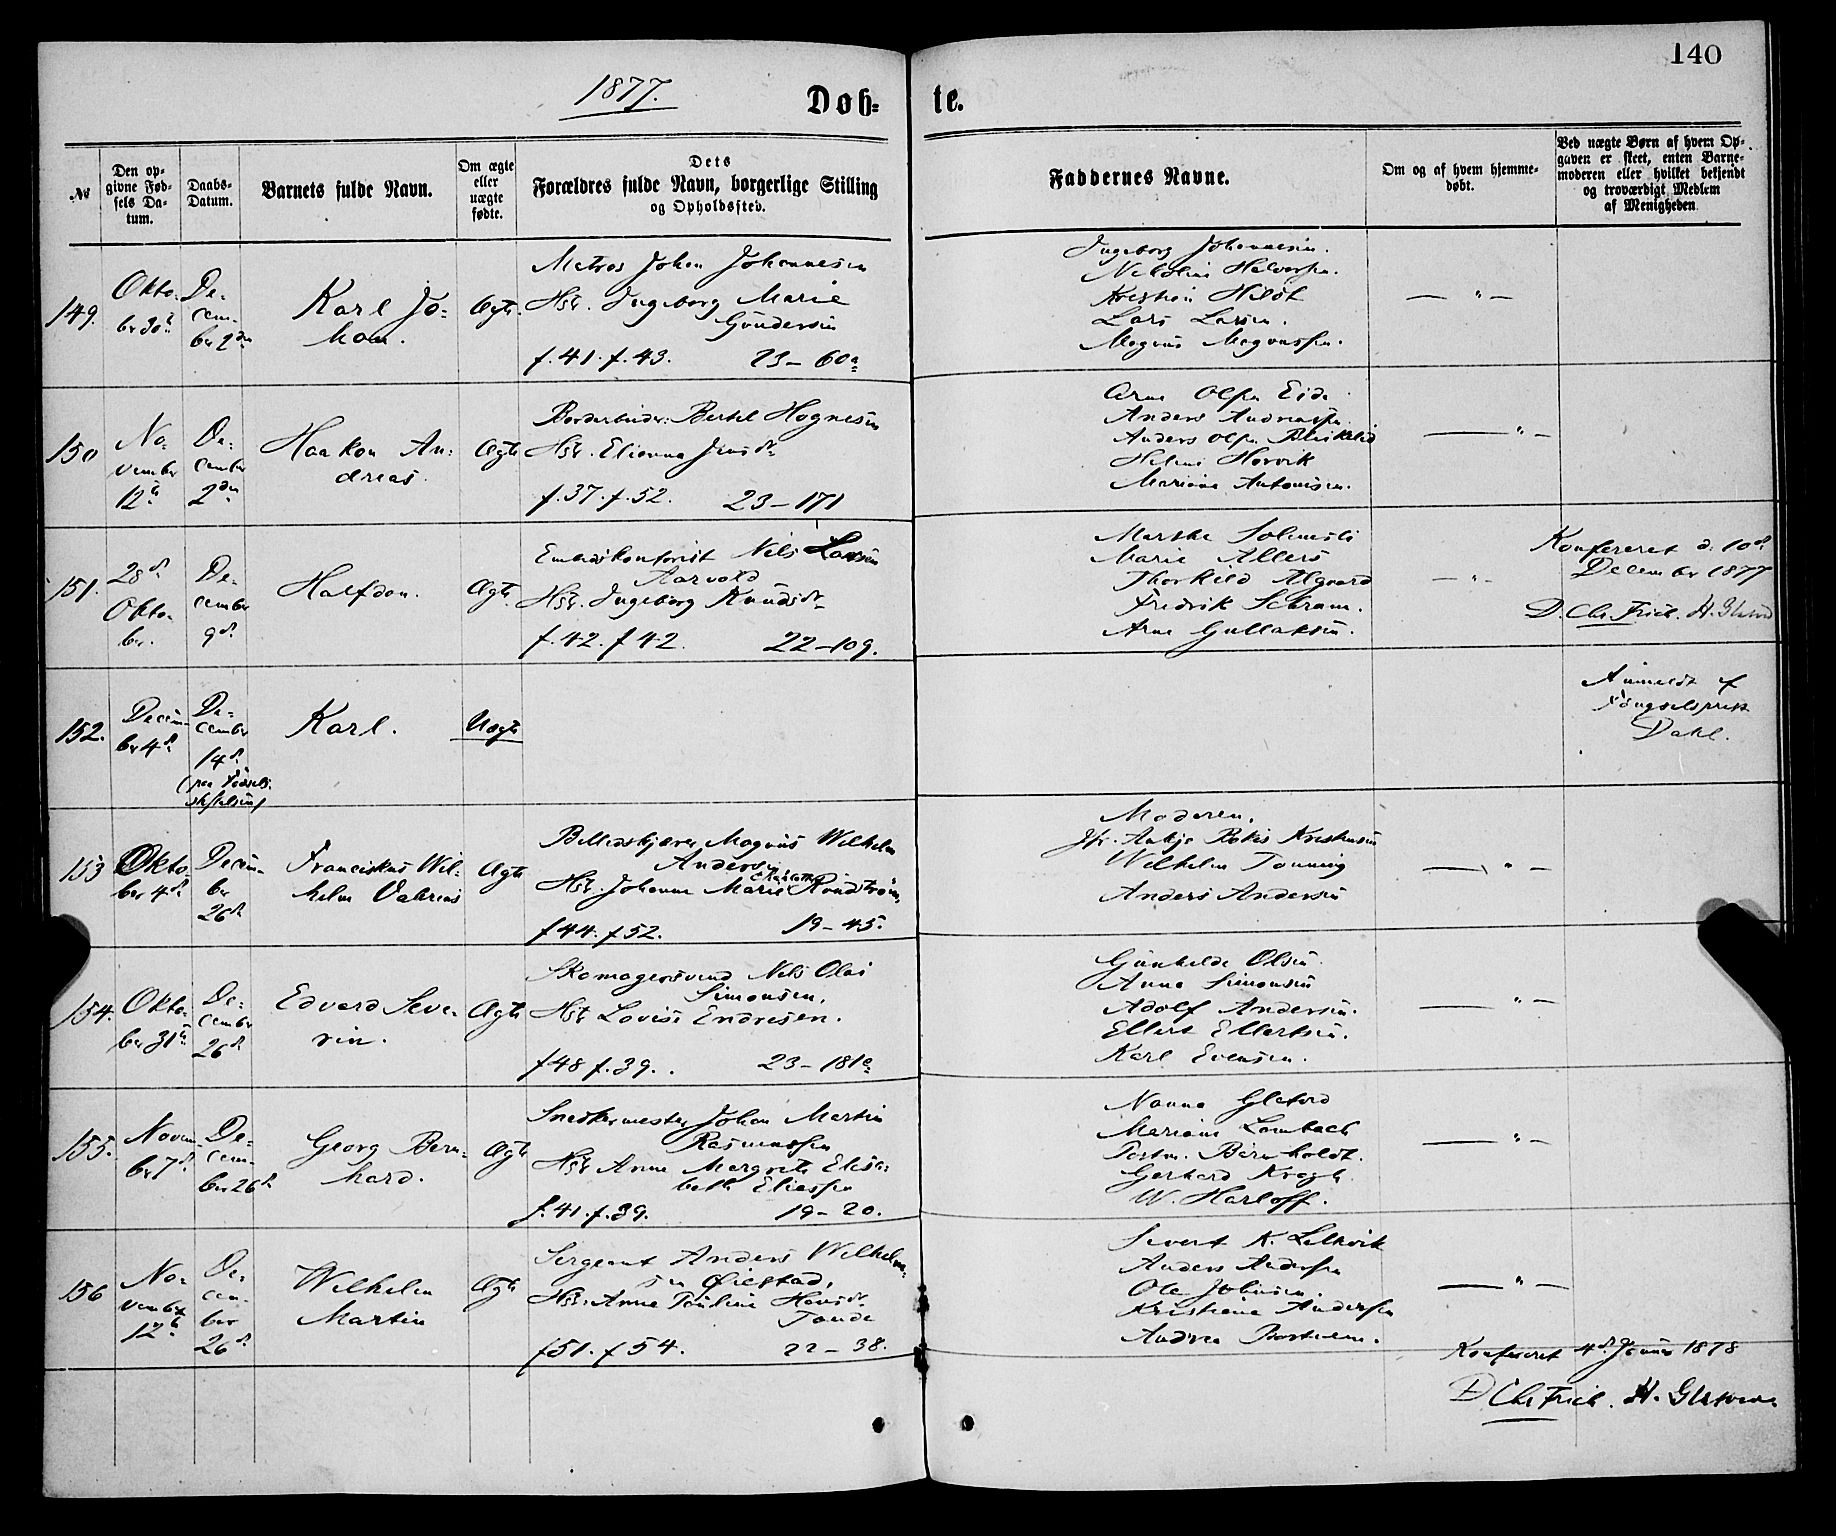 140
1877.
Døb-
te.
№
Den op-
givne Fød-
sels Da-
tum.
Daabs-
Datum.
Barnets fulde Navn.
Om ægte
eller
uægte
fødte.
Dets
Forældres fulde Navn, borgerlige Stilling
og Opholdssted.
Faddernes Navne.
Om og af hvem hjemme-
døbt.
Ved uægte Børn af hvem Op-
gaven er skeet, enten Barne-
moderen eller hvilket bekjendt
og troværdigt Medlem
af Menigheden
149.
Okto-
ber 30te
De-
cem-
ber 2den
Karl Jo-
han.
Ægte.
Matros Johan Johannesen
Hst. Ingeborg Marie
Gundersen
f. 41. f. 43. 23 – 60a
Ingeborg Johannesen.
Nikoline Halvorsen.
Kristian Hildt
Lars Larsen.
Magnus Magnussen.
— " —
150
No-
vember
12te
De-
cember
2den
Haakon An-
dreas.
Ægte
Bertel Hognesen
Hst. Elianna Jensdr
f. 37. f. 52. 23 – 171
Arne Olsen Eide
Anders Andreassen
Anders Olsen
Helene Horvik
Mariane Antonisen.
— " —
151.
28de
Okto-
ber.
De-
cember
9de
Halfdan.
Ægte
Embedskontorist Nils Larsen
Aarvold
Hst. Ingeborg Knudsdr
f. 42. f 42. 22 – 109.
Marthe
Marie Allers
Thorkild Algaard
Fredrik Schram.
Arne Gullaksen.
— " —
Konfereret d. 10de
December 1877
D. Chr Frich. H. Glatved
152.
Decem-
ber 4de
De-
cember
14de
(paa Fødsels-
stiftelsen)
Karl.
Uægte
Anmeldt af
Fængselsprest
Dahl.
153
Okto-
ber 4de
Decem-
ber
26de
Franciskus Wil-
helm Valerius
Ægte
Billedskjærer Magnus Wilhelm
Andersen
Hst. Johanne Marie Charlotte Rundström
f 44. f 52. 19 – 45.
Moderen.
Jfr. Antje Kristensen
Wilhelm Tonning
Anders Andersen
— " —
154.
Okto-
ber 31te
De-
cember
26de
Edvard Seve-
rin.
Ægte
Skomagersvend Nils Olai
Simonsen.
Hst Lovise Endresen.
f 48 f. 39. 23 – 181c
Gunhilde Olsen.
Anna Simonsen
Adolf Andersen.
Ellert Ellertsen.
Karl Evensen.
— " —
155.
Novem-
ber 7de
De-
cem-
ber 26de
Georg Bern-
hard.
Ægte
Snedkermester Johan Martin
Rasmussen
Hst Anne Margrete Elisa-
beth Eliassen
f. 41. f. 39. 19 – 20.
Nanna Glatved
Mariane Lambach
Bernholdt.
Gerhard Kragh
W. Harloff.
— " —
156
No-
vember
12te
De-
cem-
ber
26de
Wilhelm
Martin
Ægte
Sergeant Anders Wilhelm-
sen Øiestad,
Hst. Anne Pauline Hansdr
Tande
f 51. f 54. 22 – 38.
Sivert K. Lekvik
Anders Andersen
Ole Johnsen.
Kristiane Andersen
Andrea
— " —
Konfereret 4de Januar 1878
D Chr Frich. H. Glatved